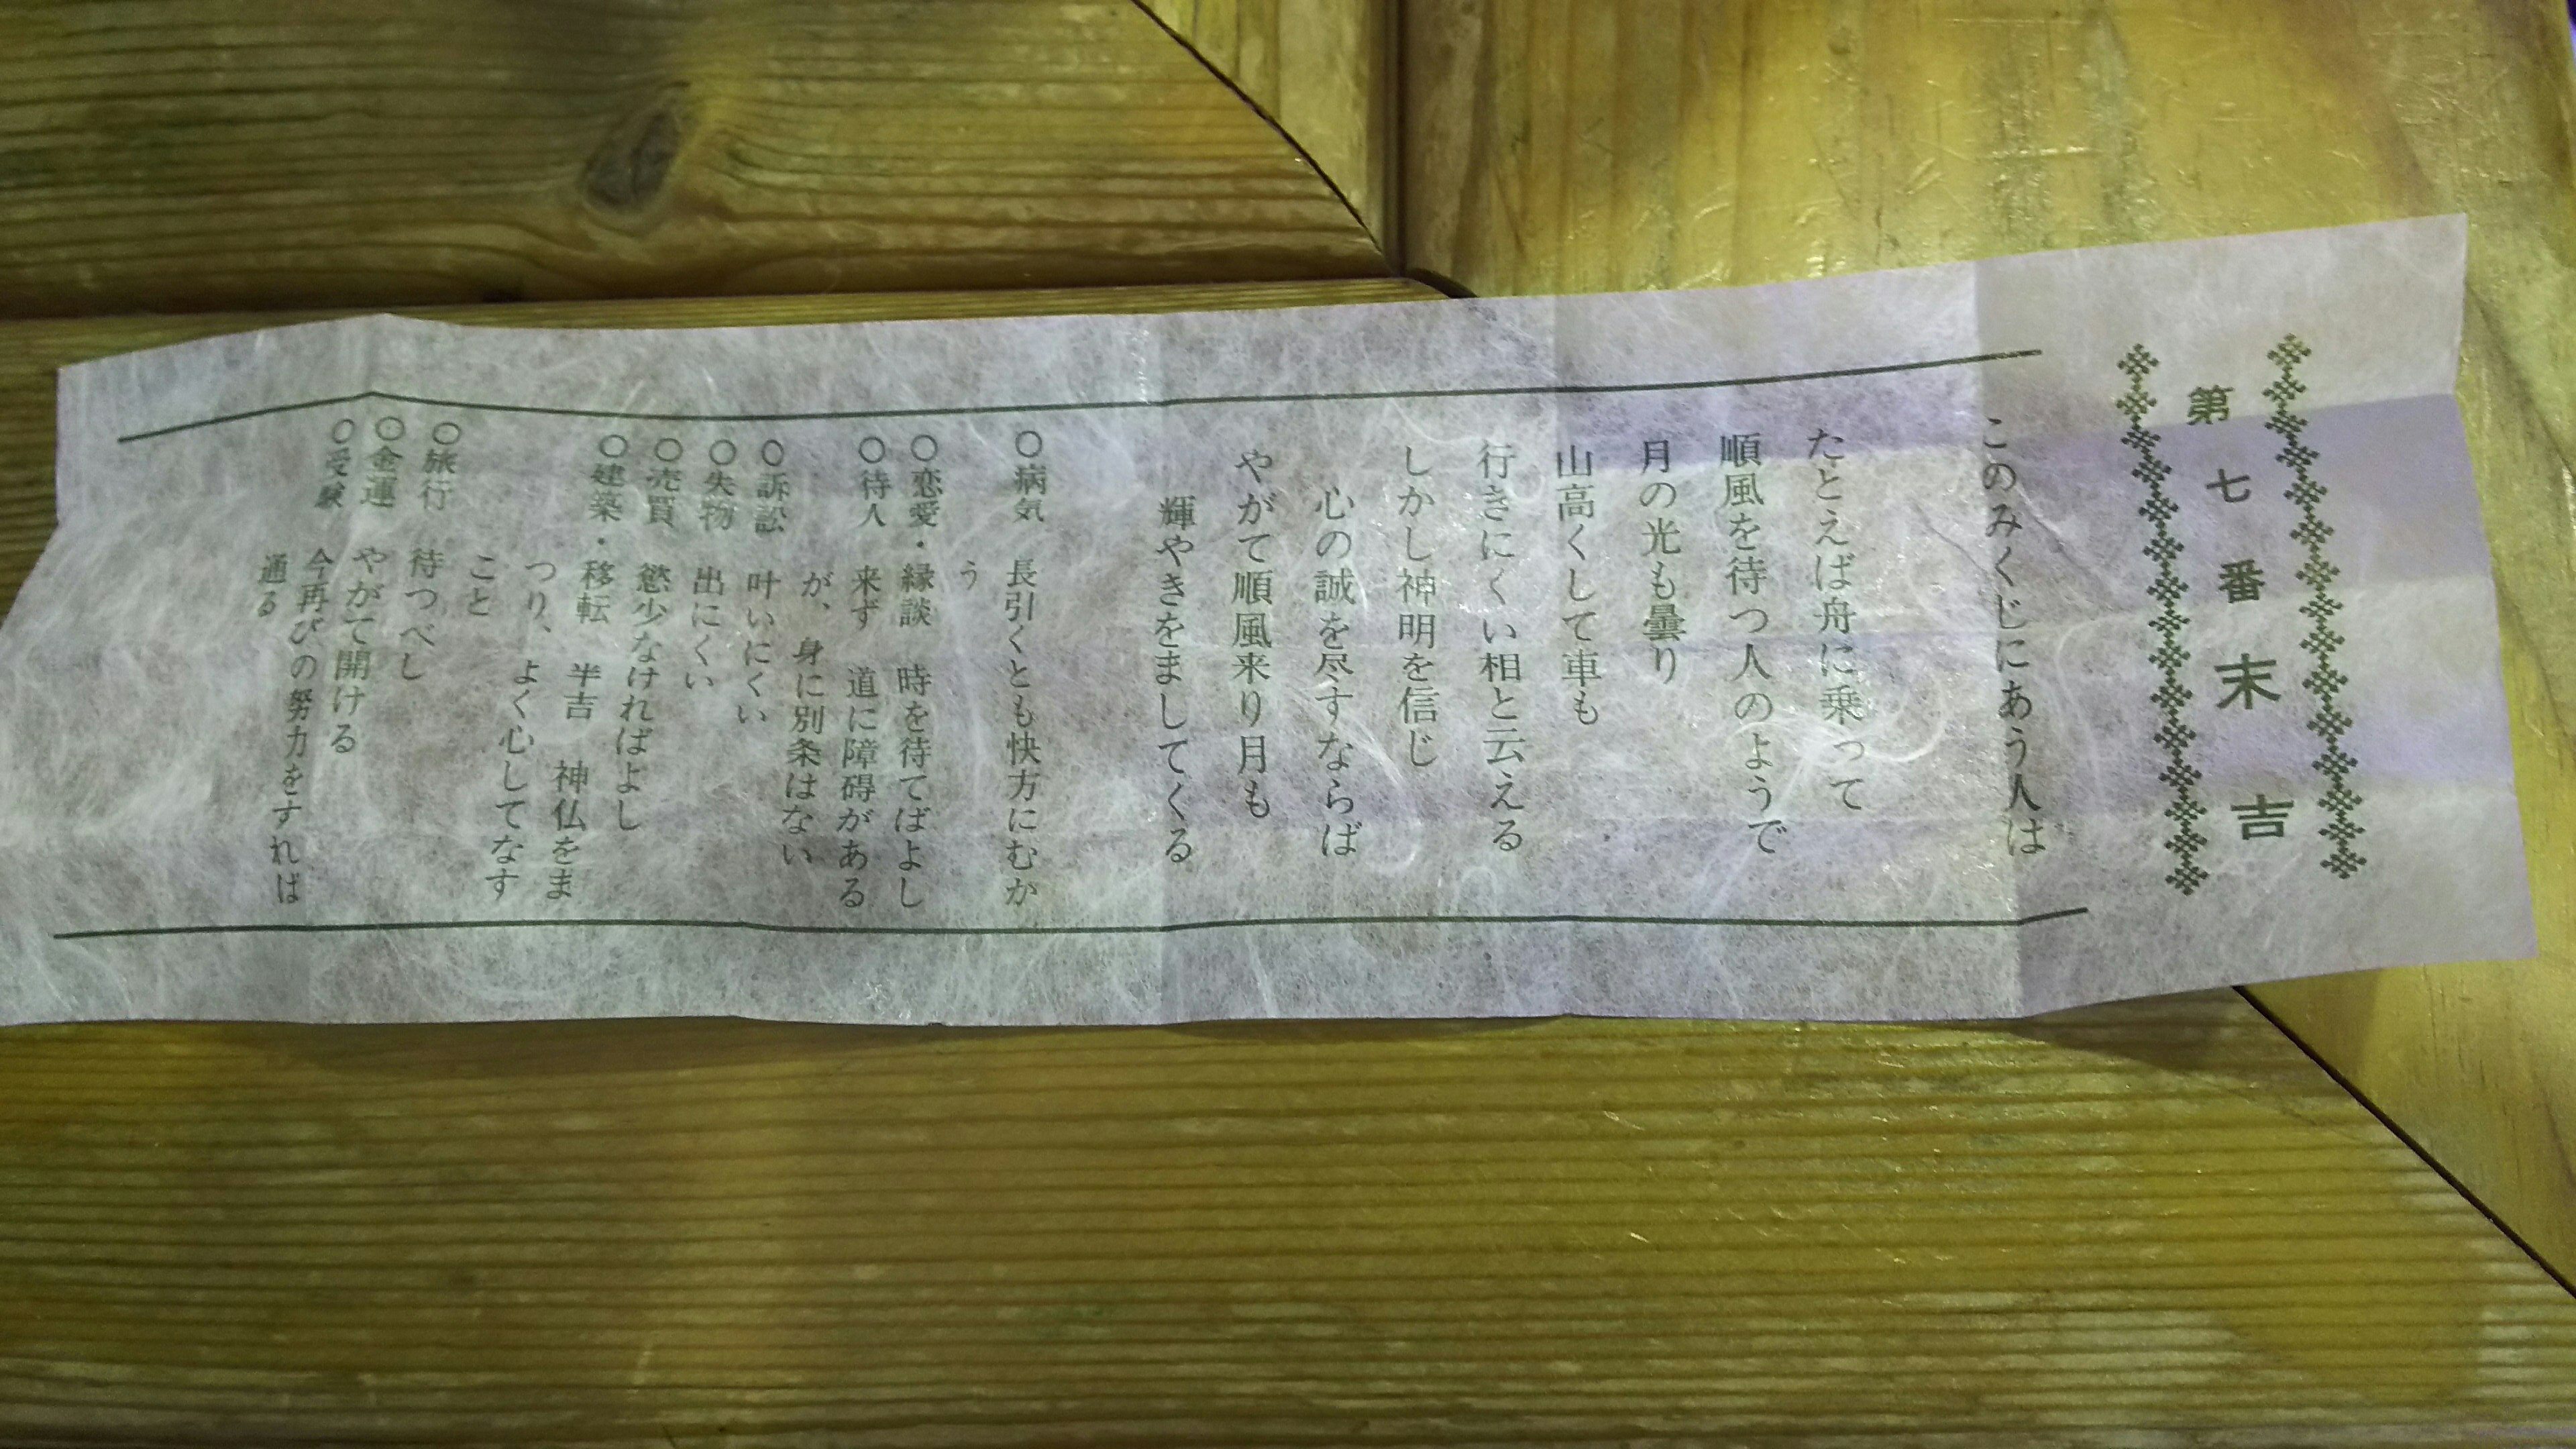 第七番 末吉
このみくじにあう人は
たとえば舟に乗って
順風を待つ人のようで
月の光も曇り
山高くして車も
行きにくい相と云える
しかし神明を信じ
心の誠を尽すならば
やがて順風来り月も
輝やきをましてくる
○病気 長引くとも快方にむか
う
○恋愛・縁談 時を待てばよし
○待人 来ず 道に障碍がある
が、身に別条はない
○訴訟 叶いにくい
○失物 出にくい
○売買 慾少なければよし
○建築・移転 半吉 神仏をま
つり、よく心してなす
こと
○旅行 待つべし
○金運 やがて開ける
○受験 今再びの努力をすれば
通る